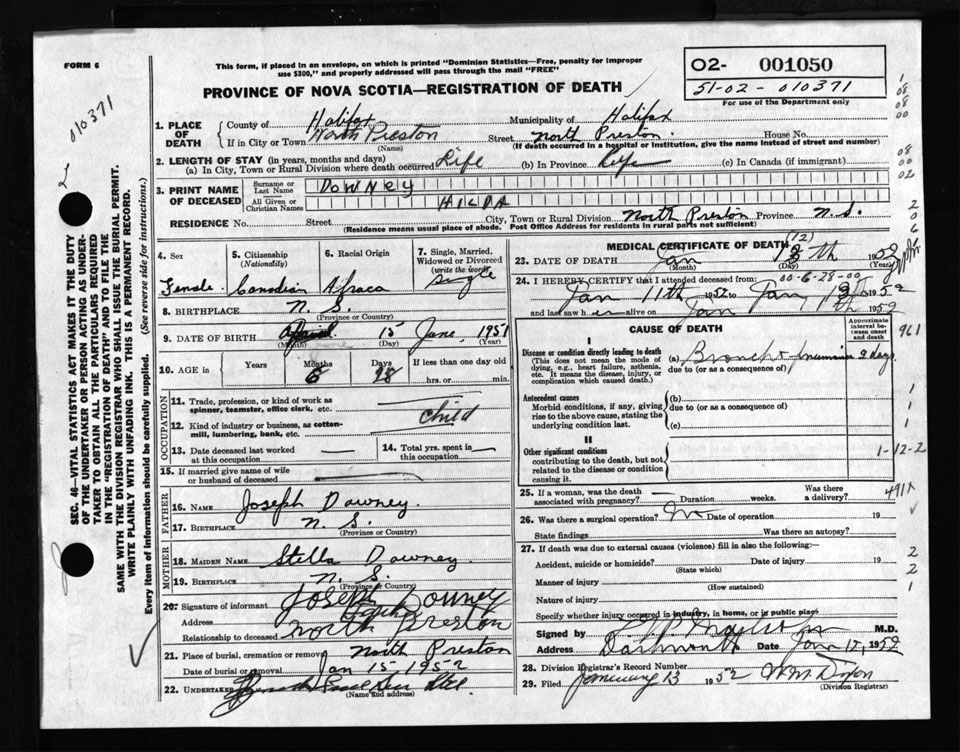 FORM 6
This form, if placed in an envelope, on which is printed "Dominion Statistics—Free, penalty for improper
use $300," and properly addressed will pass through the mail "FREE"
PROVINCE OF NOVA SCOTIA—REGISTRATION OF DEATH
O2- 001050
51-02-010371
For use of the Department only
010371
SEC. 46—VITAL STATISTICS ACT MAKES IT THE DUTY
OF THE UNDERTAKER OR PERSON ACTING AS UNDER-
TAKER TO OBTAIN ALL THE PARTICULARS REQUIRED
IN THE "REGISTRATION OF DEATH" AND TO FILE THE
SAME WITH THE DIVISION REGISTRAR WHO SHALL ISSUE THE BURIAL PERMIT.
WRITE PLAINLY WITH UNFADING INK. THIS IS A PERMANENT RECORD.
Every item of information should be carefully supplied. (See reverse side for instructions.)
1. PLACE OF DEATH
County of Halifax Municipality of Halifax
If in City or Town North Preston Street North Preston. House No.
(Name) (If death occurred in a hospital or institution, give the name instead of street and number)
2. LENGTH OF STAY (in years, months and days)
(a) In City, Town or Rural Division where death occurred Life (b) In Province Life (c) In Canada (if immigrant)
3. PRINT NAME OF DECEASED
Surname or Last Name DOWNEY
All Given or Christian Names HILDA
RESIDENCE No. Street City, Town or Rural Division North Preston Province N.S.
(Residence means usual place of abode. Post Office Address for residents in rural parts not sufficient)
4. Sex
Female
5. Citizenship
(Nationality)
Canadian
6. Racial Origin
Africa
7. Single, Married,
Widowed or Divorced
(write the word)
Single
8. BIRTHPLACE N.S.
(Province or Country)
9. DATE OF BIRTH 15 June 1951
(Month) (Day) (Year)
10. AGE in Years Months Days If less than one day old
6 28 hrs. or min.
OCCUPATION
11. Trade, profession, or kind of work as
spinner, teamster, office clerk, etc.
12. Kind of industry or business, as cotton-
mill, lumbering, bank, etc.
Child
13. Date deceased last worked
at this occupation
14. Total yrs. spent in
this occupation
15. If married give name of wife
or husband of deceased
FATHER
16. Name Joseph Downey.
17. Birthplace N.S.
(Province or Country)
MOTHER
18. Maiden Name Stella Downey.
19. Birthplace N.S.
(Province or Country)
20. Signature of informant Joseph Downey
Address North Preston
Relationship to deceased
21. Place of burial, cremation or removal North Preston
Date of burial or removal Jan 15 1952
22. Undertaker
(Name and address)
MEDICAL CERTIFICATE OF DEATH
23. DATE OF DEATH Jan (12) th 1952
(Month) (Day) (Year)
24. I HEREBY CERTIFY that I attended deceased from: 00-6-28-00
Jan 11th 1952 to Jan 1952
and last saw her alive on Jan th 1952
CAUSE OF DEATH
Approximate interval between onset and death
I
Disease or condition directly leading to death
(This does not mean the mode of
dying, e.g., heart failure, asthenia,
etc. It means the disease, injury, or
complication which caused death.)
(a) Broncho-pneumonia 2 days
due to (or as a consequence of)
Antecedent causes
Morbid conditions, if any, giving
rise to the above cause, stating the
underlying condition last.
(b)
due to (or as a consequence of)
(c)
II
Other significant conditions
contributing to the death, but not
related to the disease or condition
causing it.
1-12-2
25. If a woman, was the death
associated with pregnancy? Duration weeks. Was there
a delivery?
491X
26. Was there a surgical operation? No Date of operation 19
State findings Was there an autopsy?
27. If death was due to external causes (violence) fill in also the following:—
Accident, suicide or homicide? Date of injury 19
(State which)
Manner of injury
(How sustained)
Nature of injury
Specify whether injury occurred in industry, in home, or in public place
Signed by M.D.
Address Dartmouth Date Jan 12, 1952
28. Division Registrar's Record Number
29. Filed January 13 1952 W.M. Dixon
(Division Registrar)